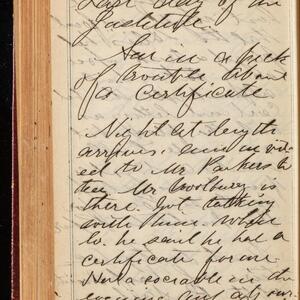 Last day of the
Institute.
Am in a peck
of trouble about
a certificate
Night at length
arrives, am invit
ed to Mr Parkers to
tea Mr Woolbury is
there. Got talking
with him. When
lo. he said he had a
certificate for me.
Had a socrable in the
evening and